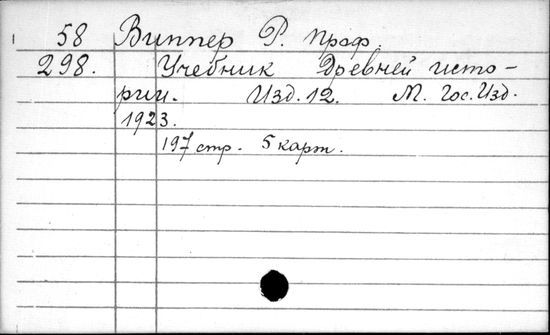 58 Виппер Р. проф.
298. Учебник Древней исто-
рии. Изд. 12. М. Гос. Изд.
1923.
197 стр. 5 карт.